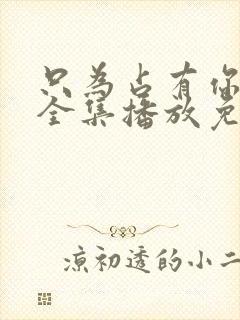 只为占有你
全集播放免
凉初透的小二